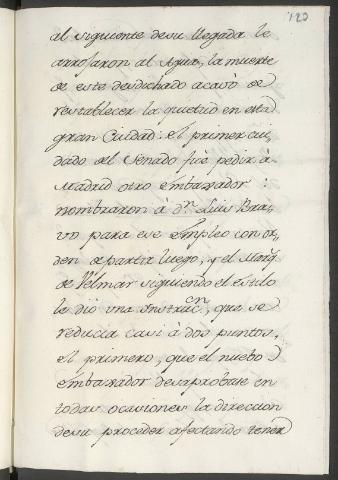 120
al siguiente de su llegada le
arrojaron al Agua, la muerte
de este desdichado acavò de
restablecer la quietud en esta
gran Ciudad: el primer cui,,
dado del Senado fuè pedir à
Madrid otro embaxador:
nombraron à Dn. Luis Bra,,
vo para ese Empleo con or,,
den de partir luego, y el Marqs.
de Velmar siguiendo el estilo
le diò una instruccn., que se
reducia casi à dos puntos,
el primero, que el nuebo
embaxador desaprobase en
todas ocasiones la direccion
de su proceder afectando tener